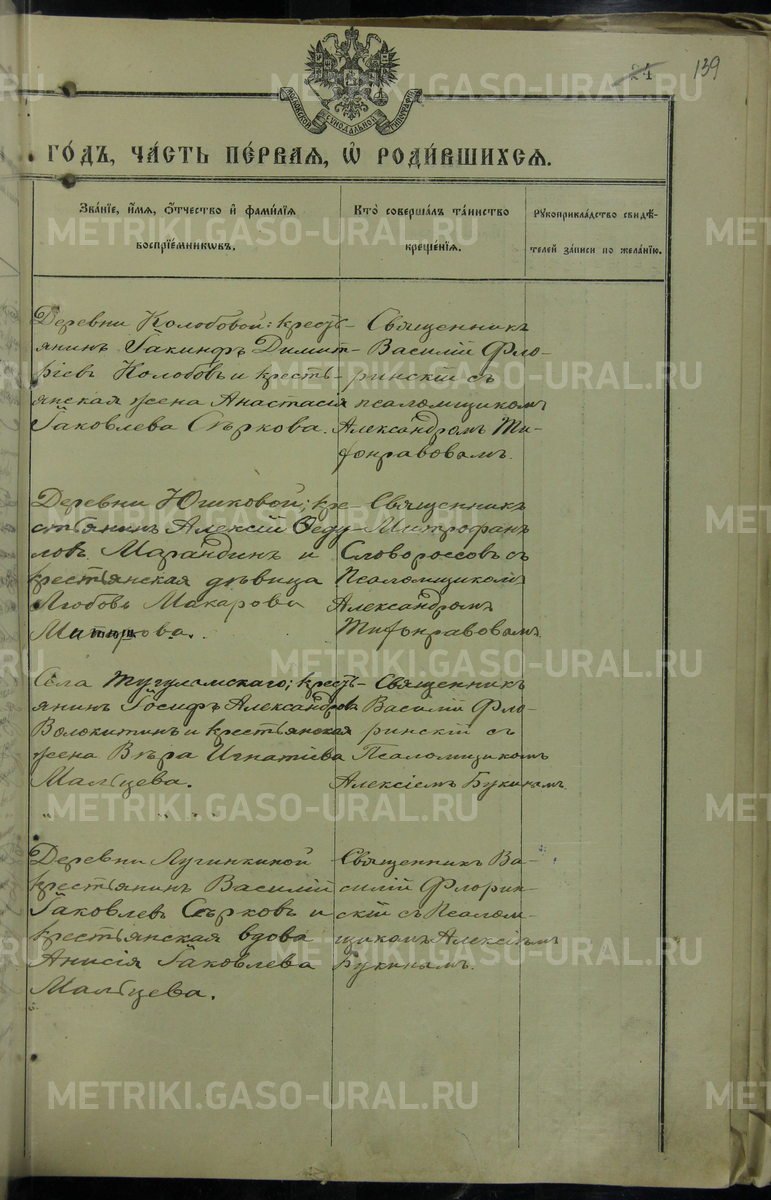 24 139
МОСКОВСКОЙ СѴНОДАЛЬНОЙ ТИПОГРАФІИ
ГО́ДЪ, ЧА́СТЬ ПЕ́РВАЯ, Ѡ҆ РОДИ́ВШИХСЯ.
Зва́нїе, и҆́мя, Ѻ҆́тчество и҆ фами́лїя
воспрїе́мниковъ.
Кто̀ соверша́лъ та́инство
креще́нїя.
Рꙋкоприкла́дство свидѣ́-
телей за́писи по жела́нїю.
Деревни Колобовой: кресть-
янинъ Іакинфъ Димит-
ріевъ Колобовъ и кресть-
янская жена Анастасія
Іаковлева Сѣркова.
Священникъ
Василій Фло-
ринскій съ
псаломщикомъ
Александромъ Ти-
хонравовамъ.
Деревни Юшковой; кре-
стьянинъ Алексій Ѳеду-
ловъ Марандинъ и
крестьянская дѣвица
Любовь Макарова
Священникъ
Митрофанъ
Словороссовъ съ
Псаломщикомъ
Александромъ
Тихонравовамъ.
Села Тугуламскаго; кресть-
янинъ Іосифъ Александровъ
Волокитинъ и крестьянская
жена Вѣра Игнатіева
Мальцева.
Священникъ
Василій Фло-
ринскій съ
Псаломщикомъ
Алексіемъ Букинамъ.
Деревни Лугинкиной
крестьянинъ Василій
Іаковлевъ Сѣрковъ и
крестьянская вдова
Анисія Іаковлева
Мальцева.
Священникъ Ва-
силій Флорин-
скій съ Псалом-
щикомъ Алексіемъ
Букинамъ.
METRIKI.GASO-URAL.RU